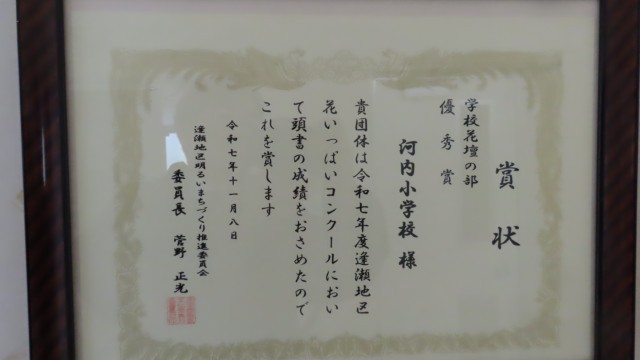 賞状
学校花壇の部
優秀賞
河内小学校 様
貴団体は令和七年度逢瀬地区
花いっぱいコンクールにおい
て頭書の成績をおさめたので
これを賞します
令和七年十一月八日
逢瀬地区明るいまちづくり推進委員会
委員長 菅野 正光